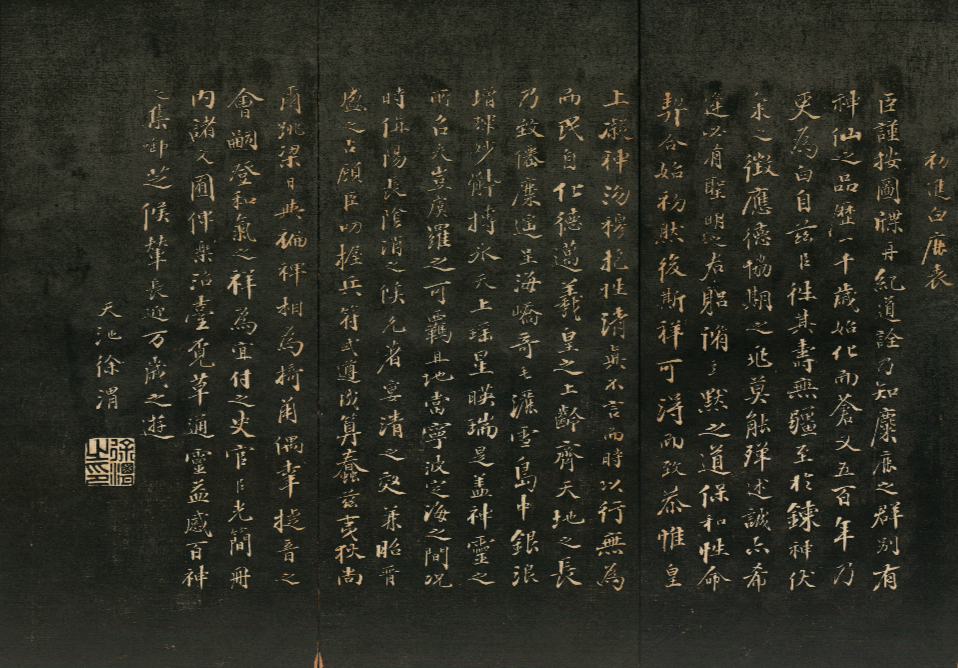 初進白鹿表
臣謹按圖牒再紀道詮乃知麋鹿之群別有
神仙之品歷一千歲始化而蒼又五百年乃
更為白自茲臣往其壽無疆至於鍊神伏
氣之徵應德協期之兆莫能殫述誠亦希
逢必有聖明之君躬脩玄默之道保和性命
契合始初然後斯祥可得而致恭惟皇
上凝神沕穆抱性清真不言而時以行無為
而民自化德邁羲皇之上齡齊天地之長
乃致仙麋遙呈海嶠奇毛灑雪島中銀浪
增輝妙體摶冰天上瑤星映瑞是蓋神靈之
所召夫豈虞羅之可羈且地當寧波定海之間況
時值陽長陰消之候允著晏清之效兼昭晉
盛之占顧臣叨握兵符式遵成算蠢茲夷狄尚
爾跳梁日與褊裨相為掎角偶幸捷音之
會嗣登和氣之祥為宜付之史官以光簡冊
內諸文囿俾樂沼臺覓草通靈益感百神
之集啣芝候輦長迎万歲之遊
天池徐渭
徐渭之印